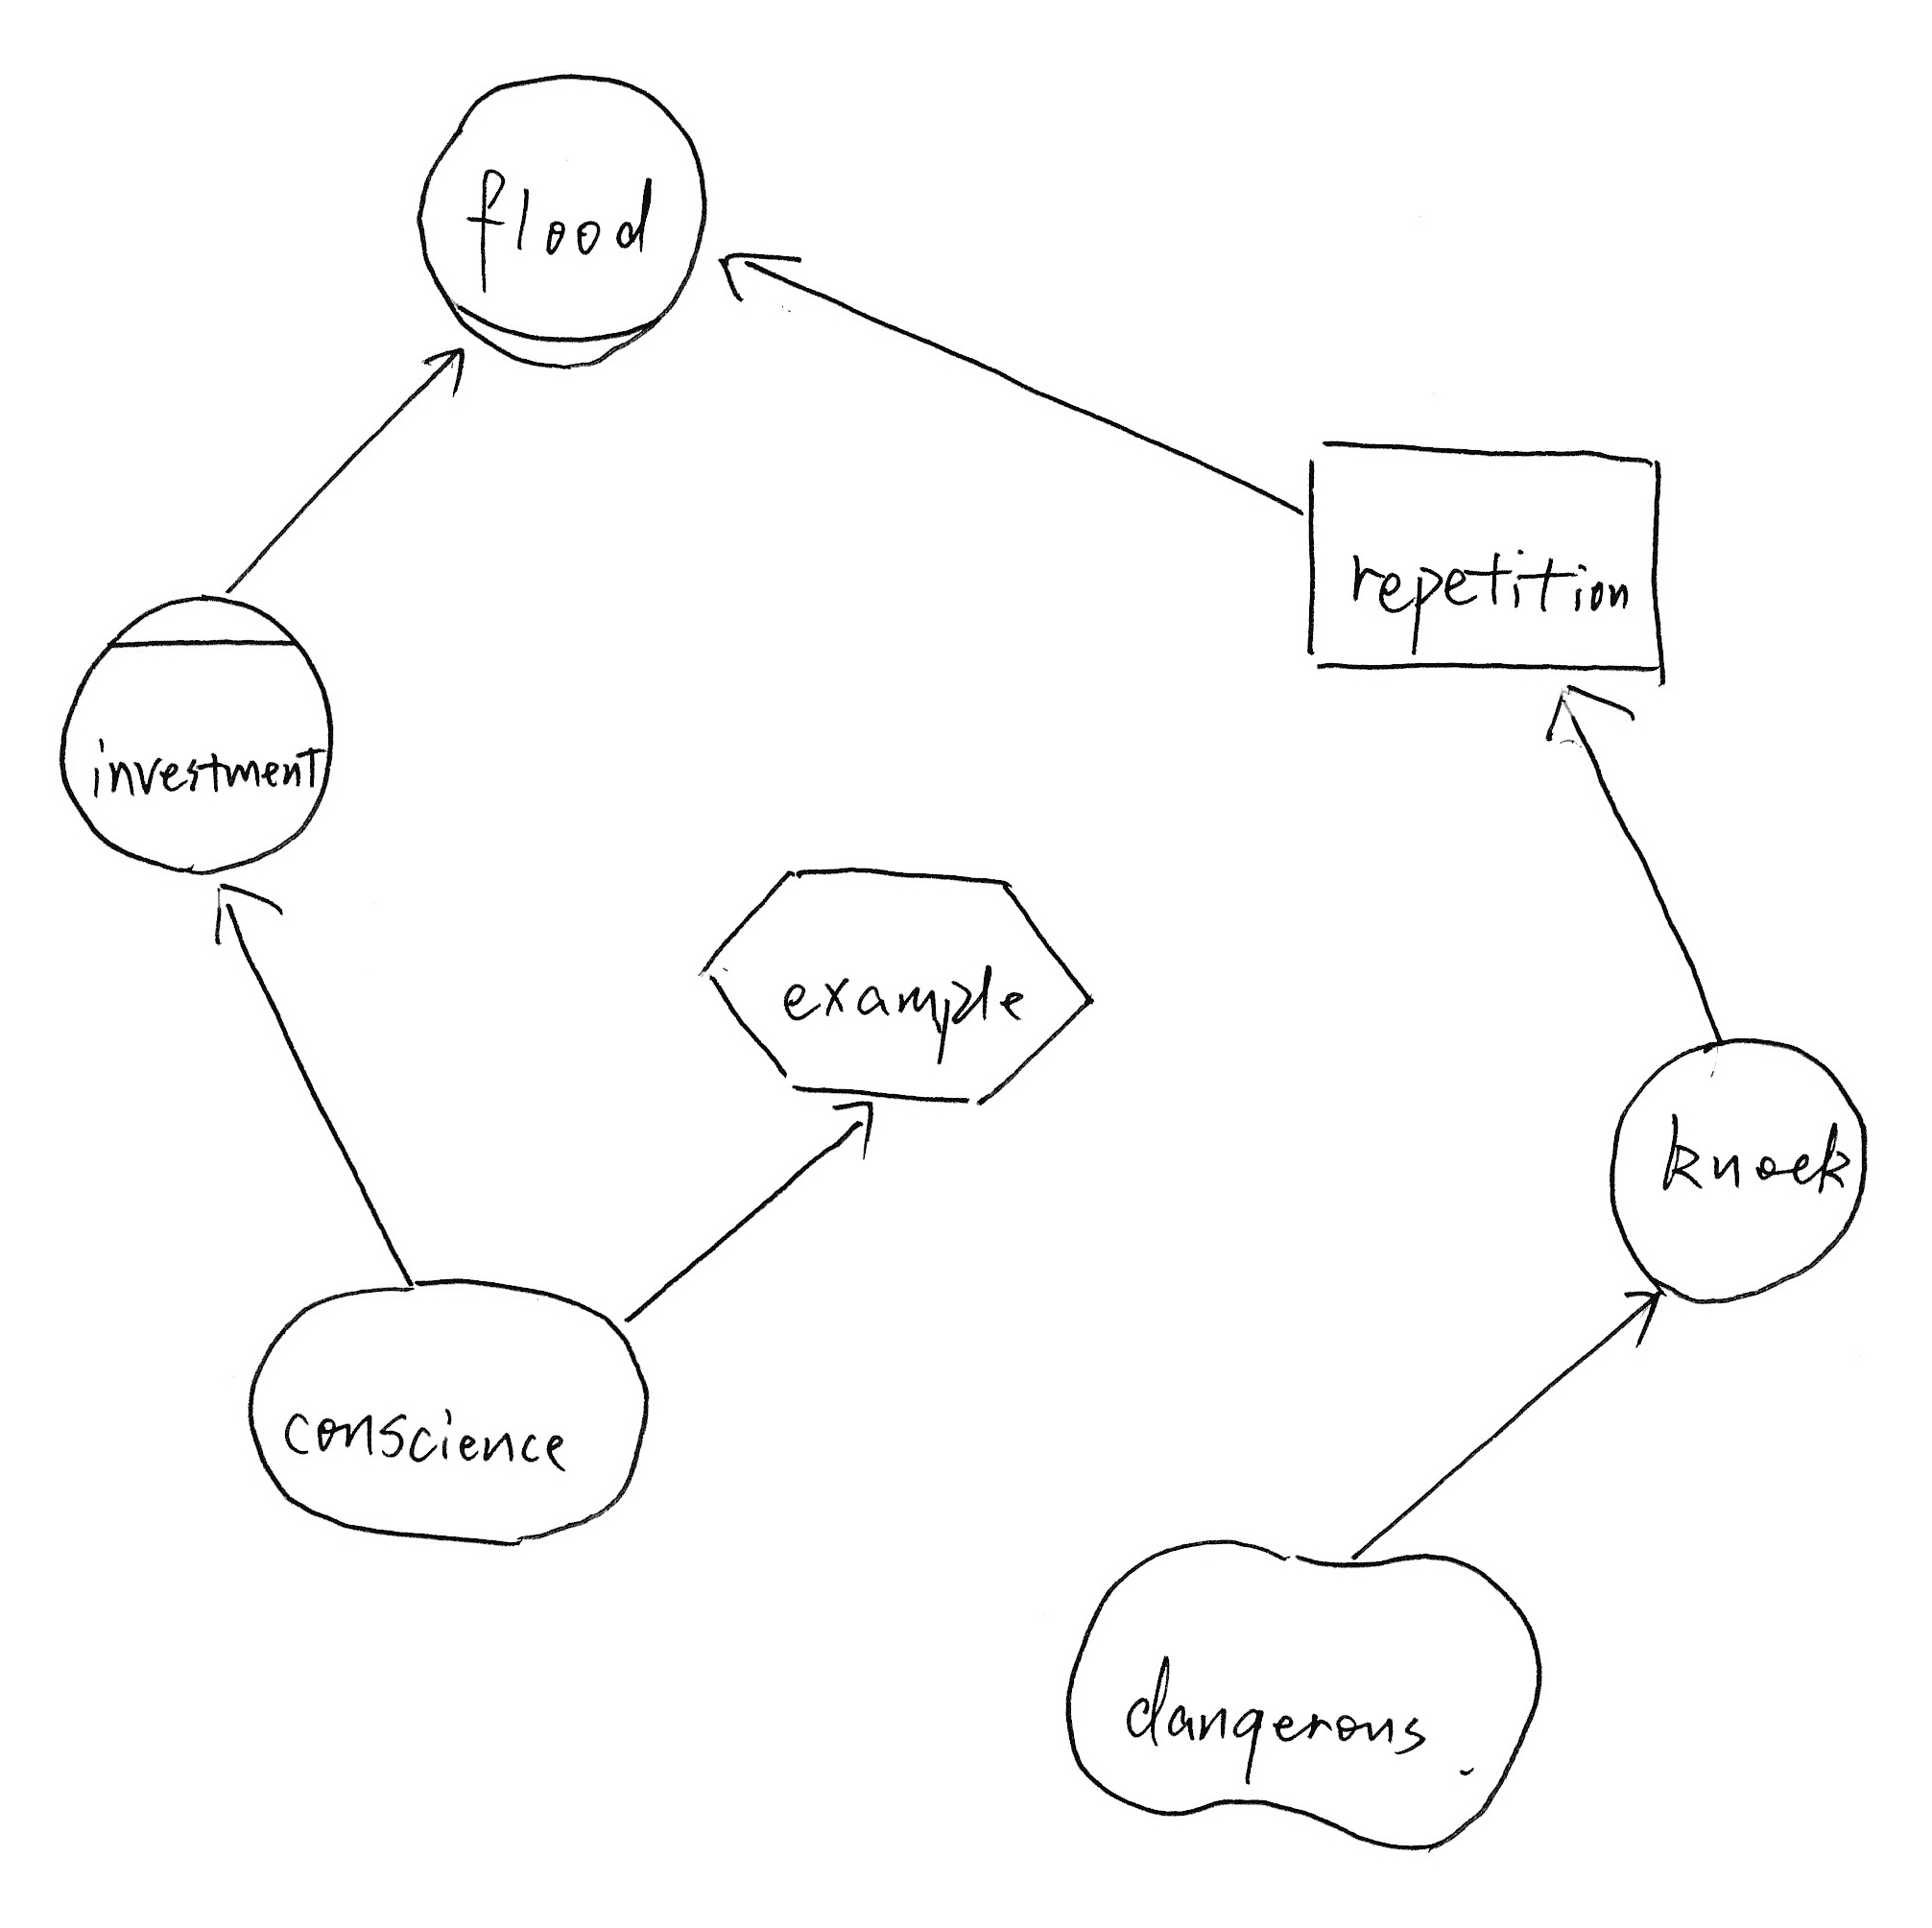 flood
repetition
investment
example
knock
conscience
dangerous